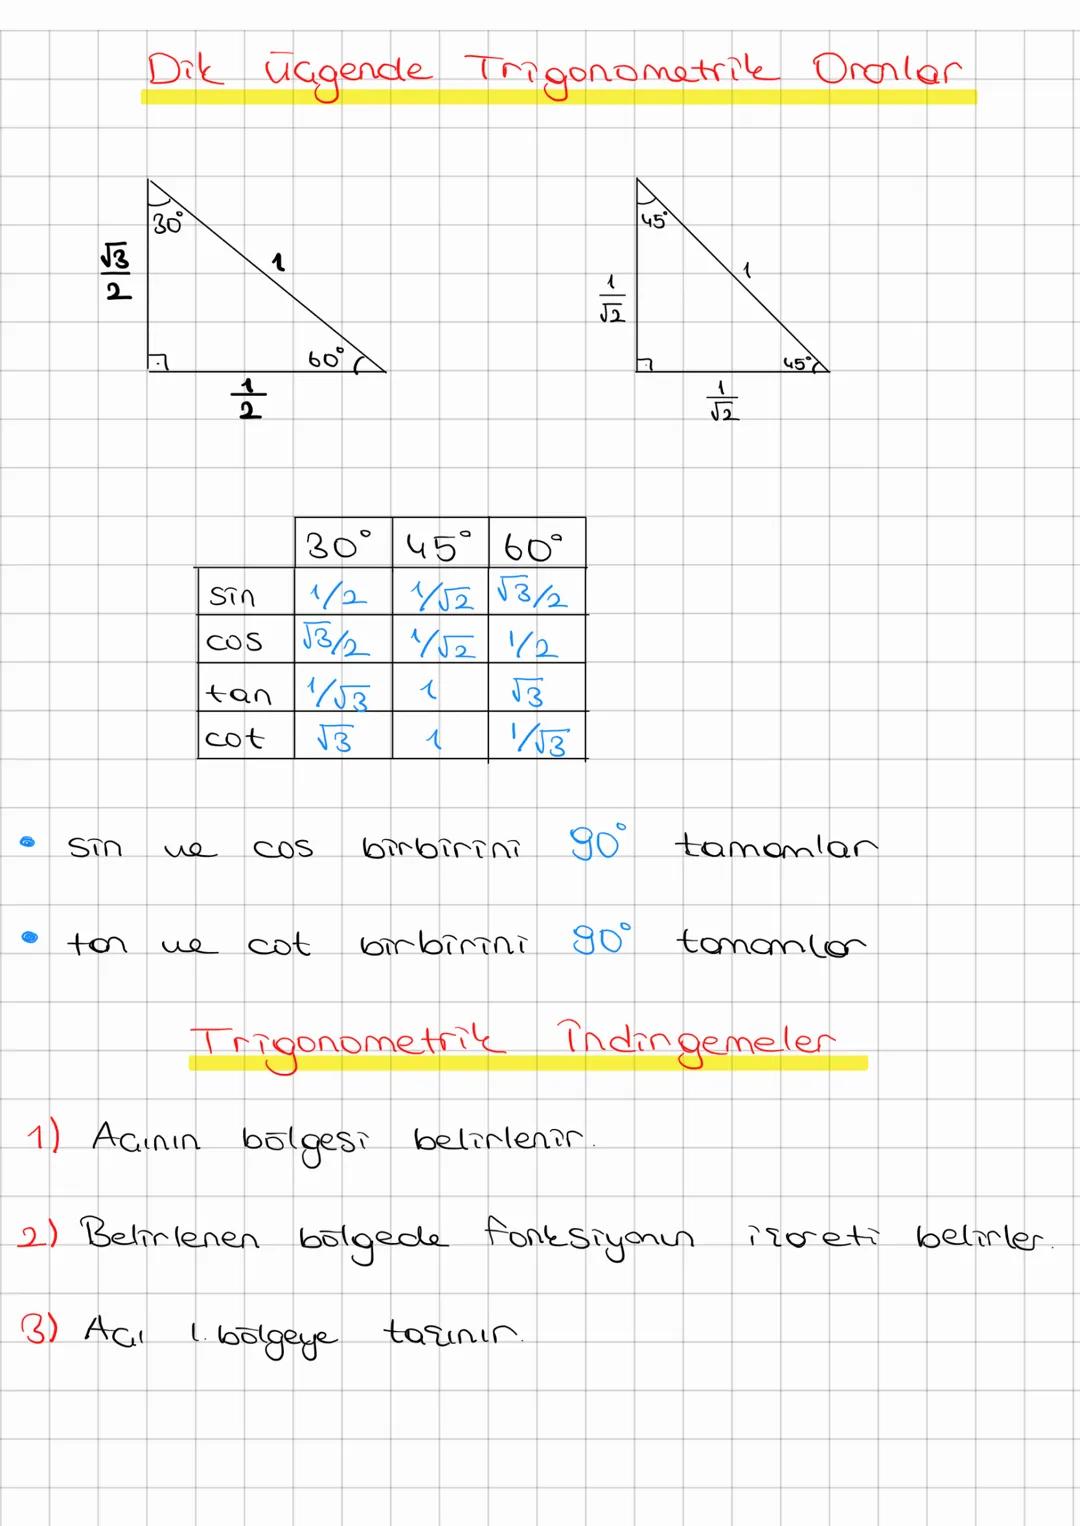 Dik üçgende Trigonometrik Oranlar
30° 45°
√3/2 1 1/√2 1
60° 45°
1/2 1/√2
30° 45° 60°
sin 1/2 1/√2 √3/2
cos √3/2 1/√2 1/2
tan 1/√3 1 √3
cot √3 1 1/√3
• sin ve cos birbirini 90° tamamlar
• tan ve cot birbirini 90° tamamlar
Trigonometrik İndirgemeler
1) Açının bölgesi belirlenir.
2) Belirlenen bölgede fonksiyonun işareti belirler.
3) Açı 1. bölgeye taşınır.